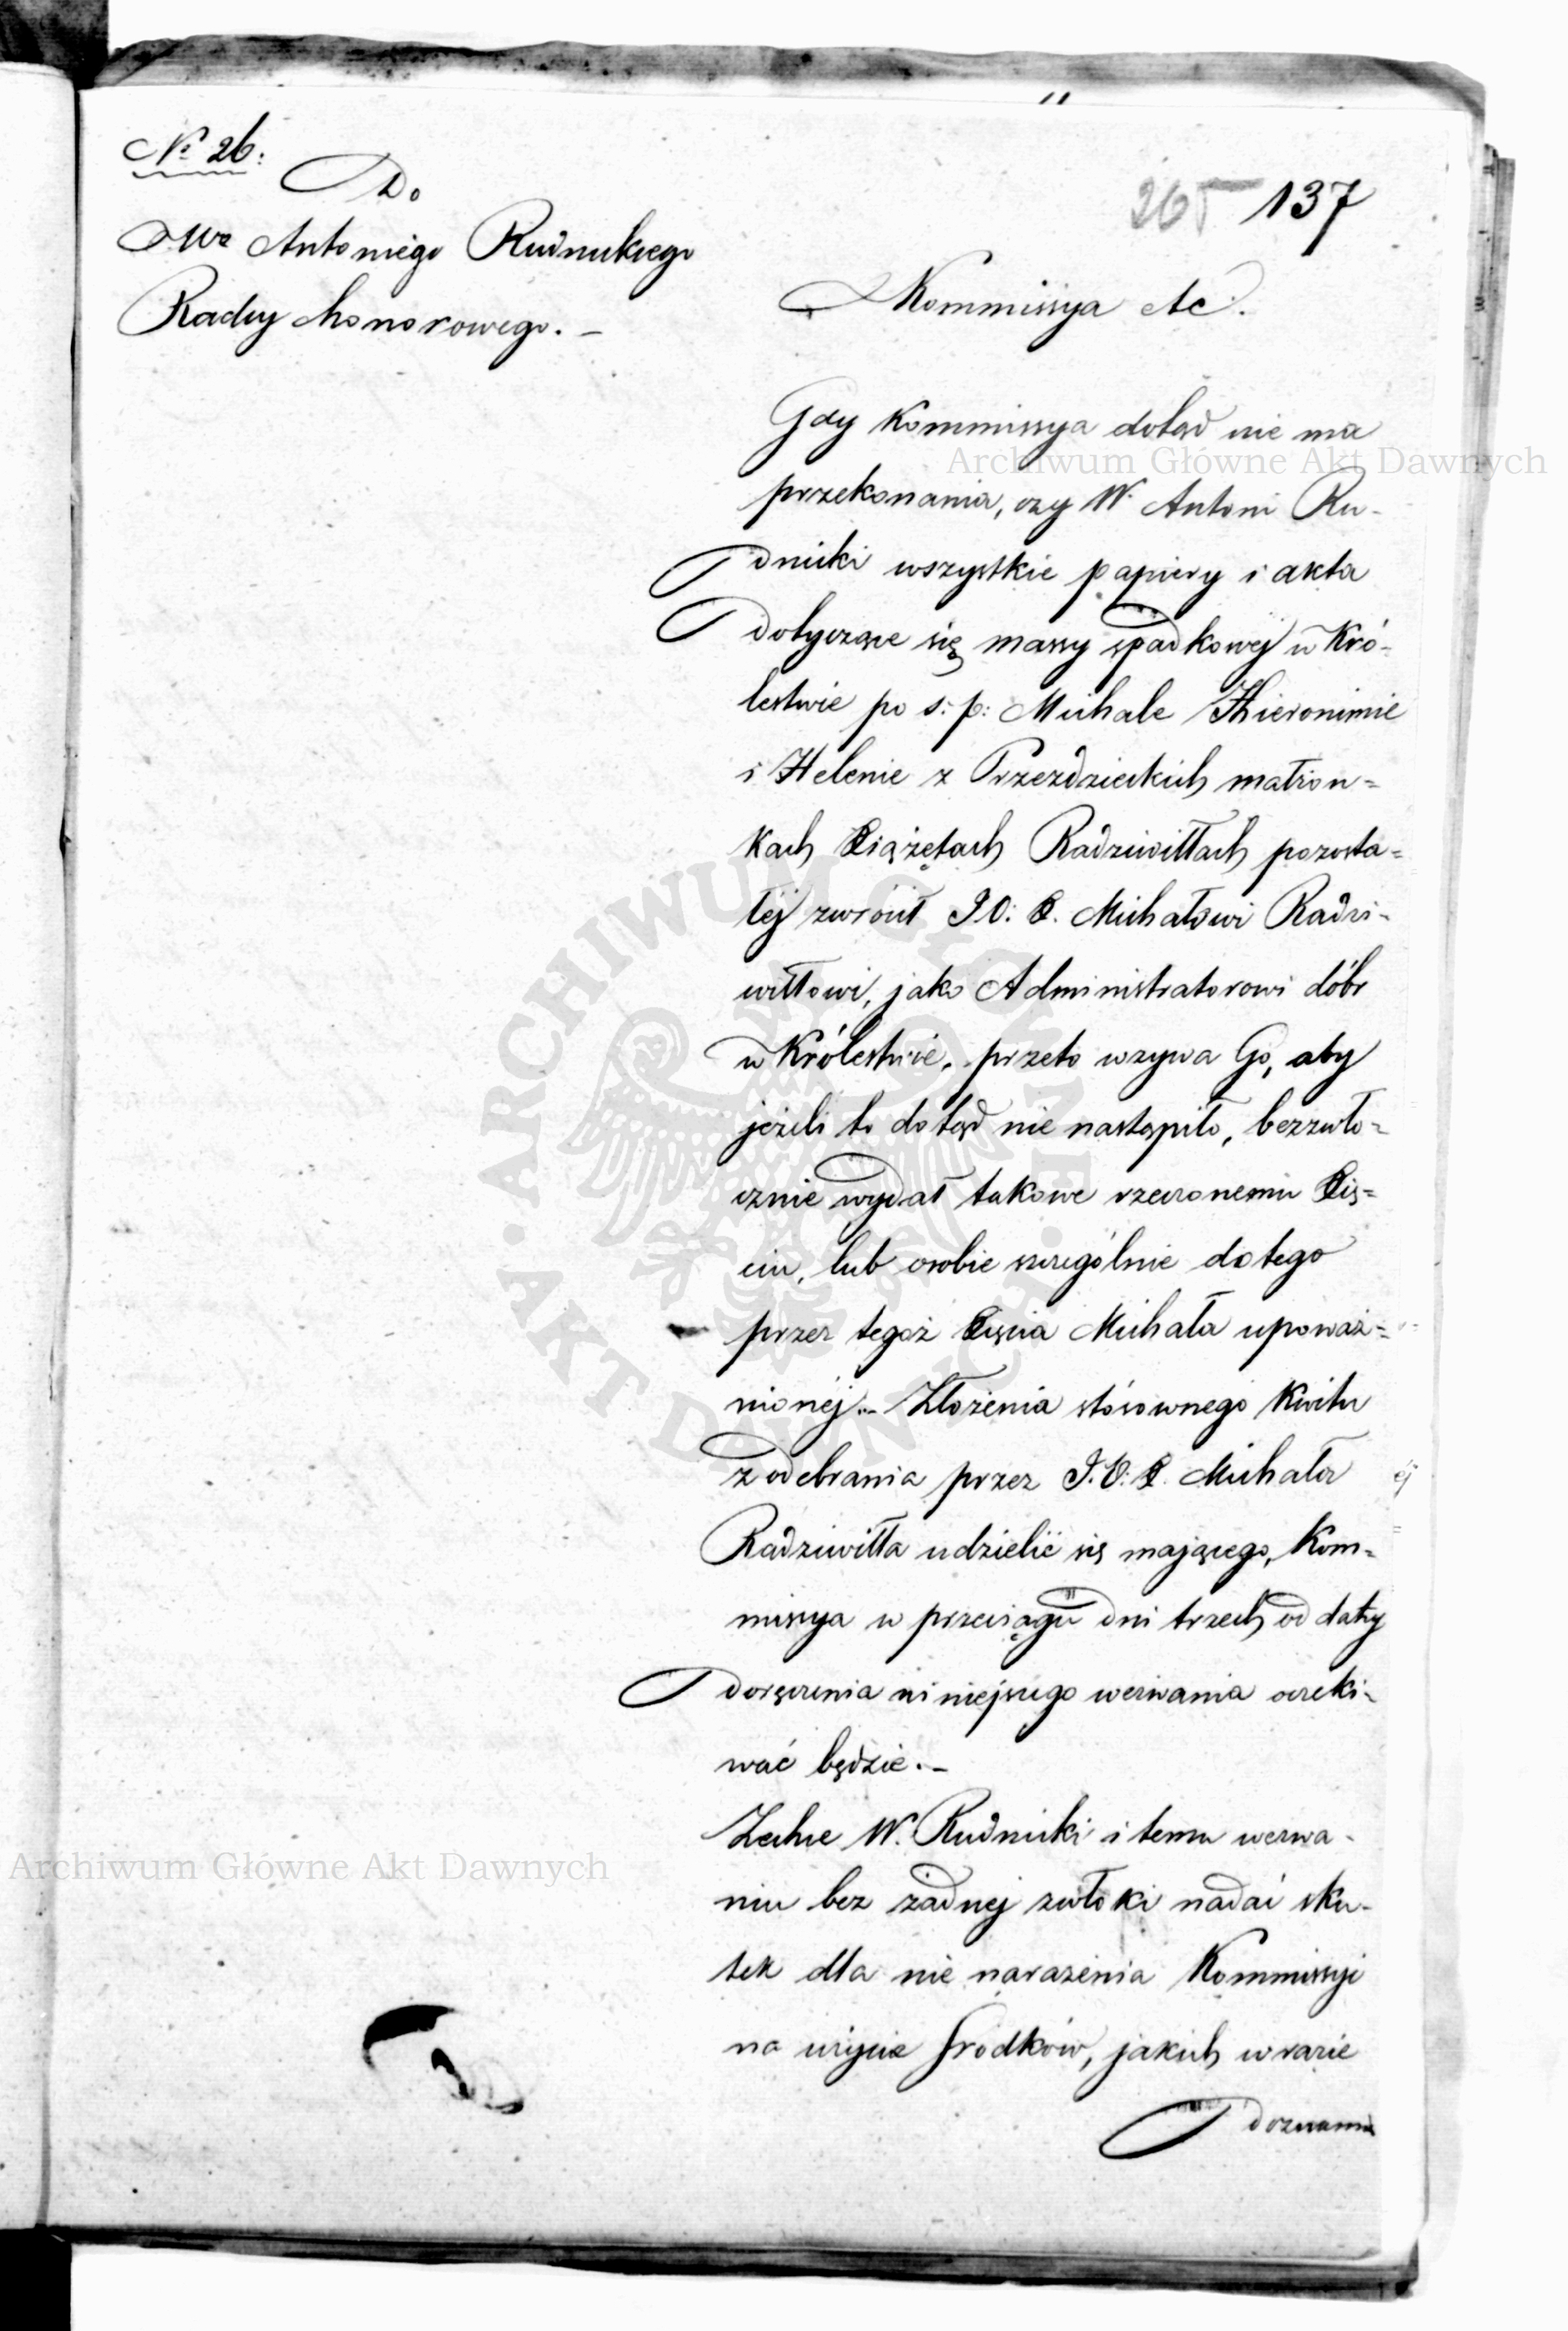 № 26.
Do
Wo Antoniego Rudnickiego
Radcy honorowego. –
265 137
Kommissya etc.
Gdy Kommissya dotąd nie ma
przekonania, czy W. Antoni Ru-
dnicki wszystkie papiery i akta
dotyczące się massy spadkowéj w Kró-
lestwie po s: p: Michale Hieronimie
i Helenie z Przezdzieckich małżon=
kach Xiążętach Radziwiłłach pozosta=
łéj zwrócił J O: X. Michałowi Radzi-
wiłłowi, jako Administratorowi dóbr
w Królestwie, przeto wzywa Go, aby
jeżeli to dotąd nie nastąpiło, bezzwło=
cznie wydał takowe rzeczonemu Xię=
ciu, lub osobie szczególnie do tego
przez tegoż Xięcia Michała upoważ=
nionéj. – Złożenia stósownego Kwitu
z odebrania przez J. O: X. Michała
Radziwiłła udzielić się mającego, Kom=
missya w przeciągu dni trzech od daty
doręczenia niniejszego wezwania oczeki-
wać będzie. –
Zechce W. Rudnicki i temu wezwa-
niu bez żadnej zwłoki nadać sku-
tek dla nie narażenia Kommissyi
na użycie środków, jakich w razie
doznania
Archiwum Główne Akt Dawnych
Archiwum Główne Akt Dawnych
ARCHIWUM GŁÓWNE AKT DAWNYCH